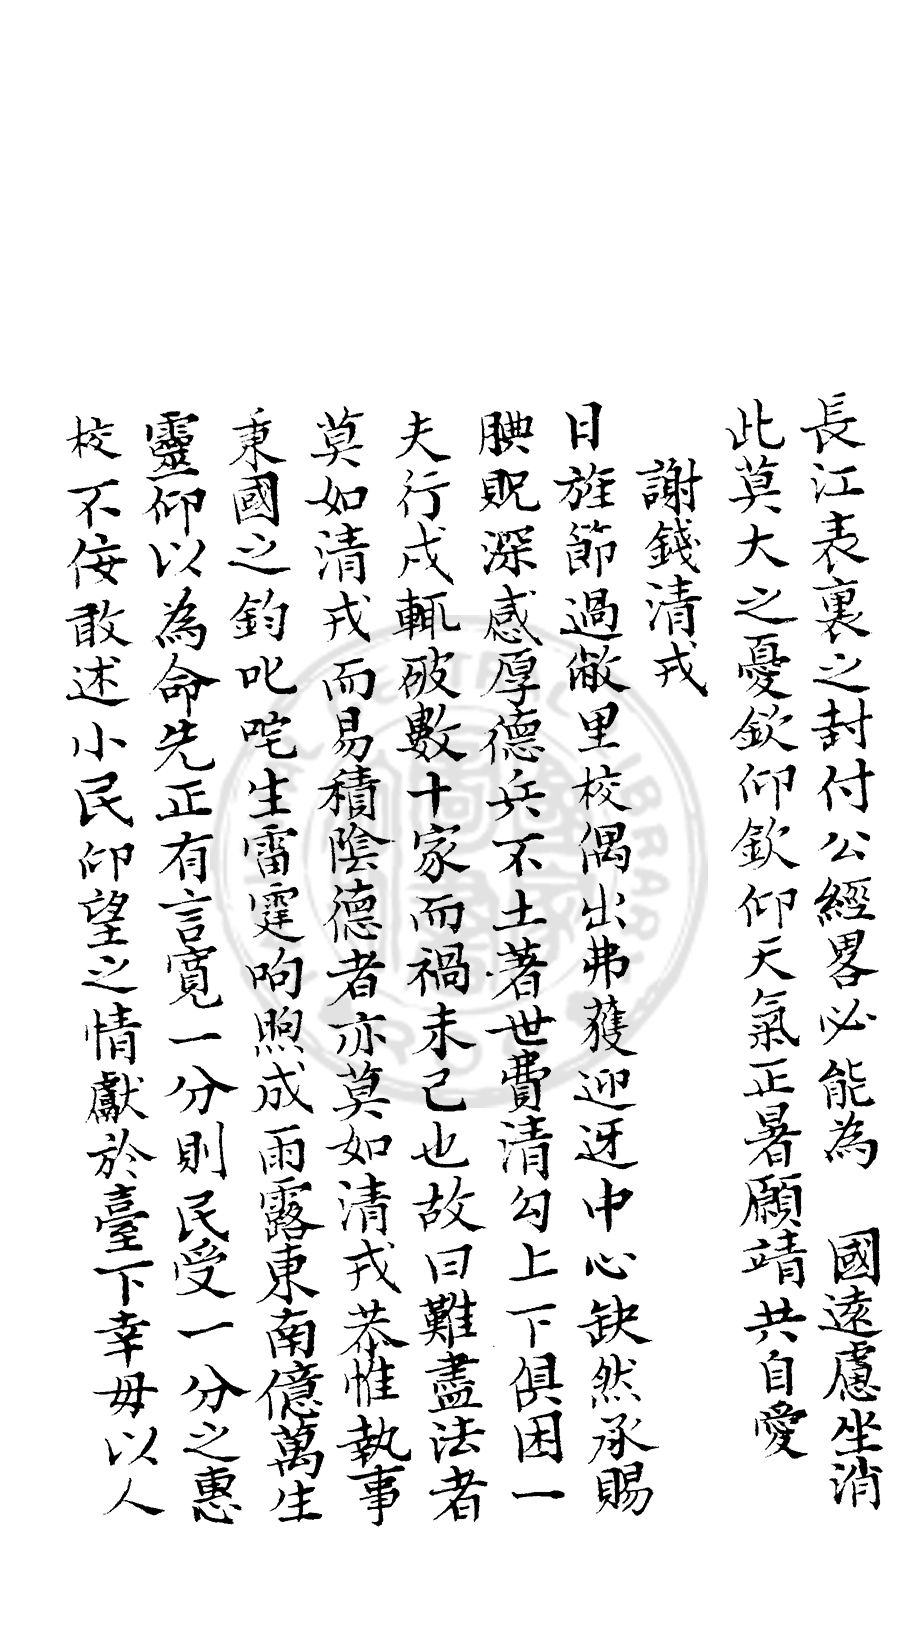 長江表裏之封付公經畧必能為　國遠慮坐消
此莫大之憂欽仰欽仰天氣正暑願靖共自愛
謝錢清戎
日旌節過敝里校偶出弗獲迎迓中心缺然承賜
腆貺深感厚德兵不土著世費清勾上下俱困一
夫行戍輒破數十家而禍未已也故曰難盡法者
莫如清戎而易積陰德者亦莫如清戎恭惟執事
秉國之鈞叱咤生雷霆呴煦成雨露東南億萬生
靈仰以為命先正有言寬一分則民受一分之惠
校不佞敢述小民仰望之情獻於臺下幸毋以人